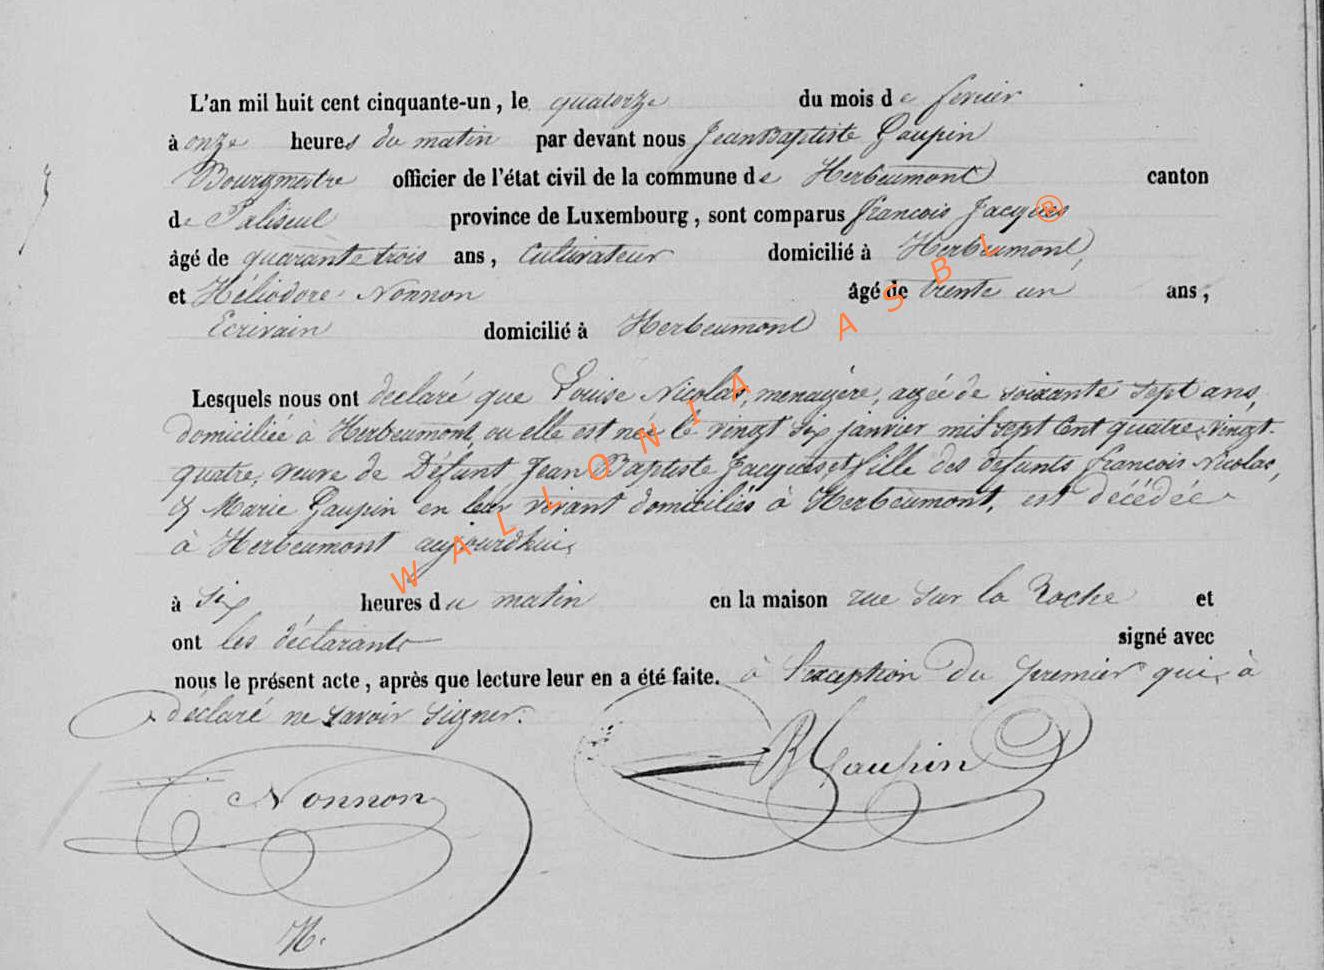 L'an mil huit cent cinquante-un, le quatorze du mois de fevrier
à onze heures du matin par devant nous Jean Baptiste Gaupin
Bourgmestre officier de l'état civil de la commune de Herbeumont canton
de Paliseul province de Luxembourg, sont comparus françois Jacques
âgé de quarante trois ans, Cultivateur domicilié à Herbeumont,
et Héliodore Nonnon âgé de trente un ans,
Ecrivain domicilié à Herbeumont
Lesquels nous ont declaré que Louise Nicolas, menagère, agée de soixante sept ans,
domiciliée à Herbeumont, ou elle est née le vingt six janvier mil sept Cent quatre-vingt-
quatre, veuve de Défunt Jean Baptiste Jacques et fille des défunts francois Nicolas,
& Marie Gaupin en leur vivant domiciliés à Herbeumont, est décédée
à Herbeumont aujourdhui,
à six heures du matin en la maison rue sur la Roche et
ont les déclarants signé avec
nous le présent acte, après que lecture leur en a été faite. à l'exception du premier qui à
déclaré ne savoir signer.
Gaupin
Nonnon
N.
WALLONIA ASBL ®